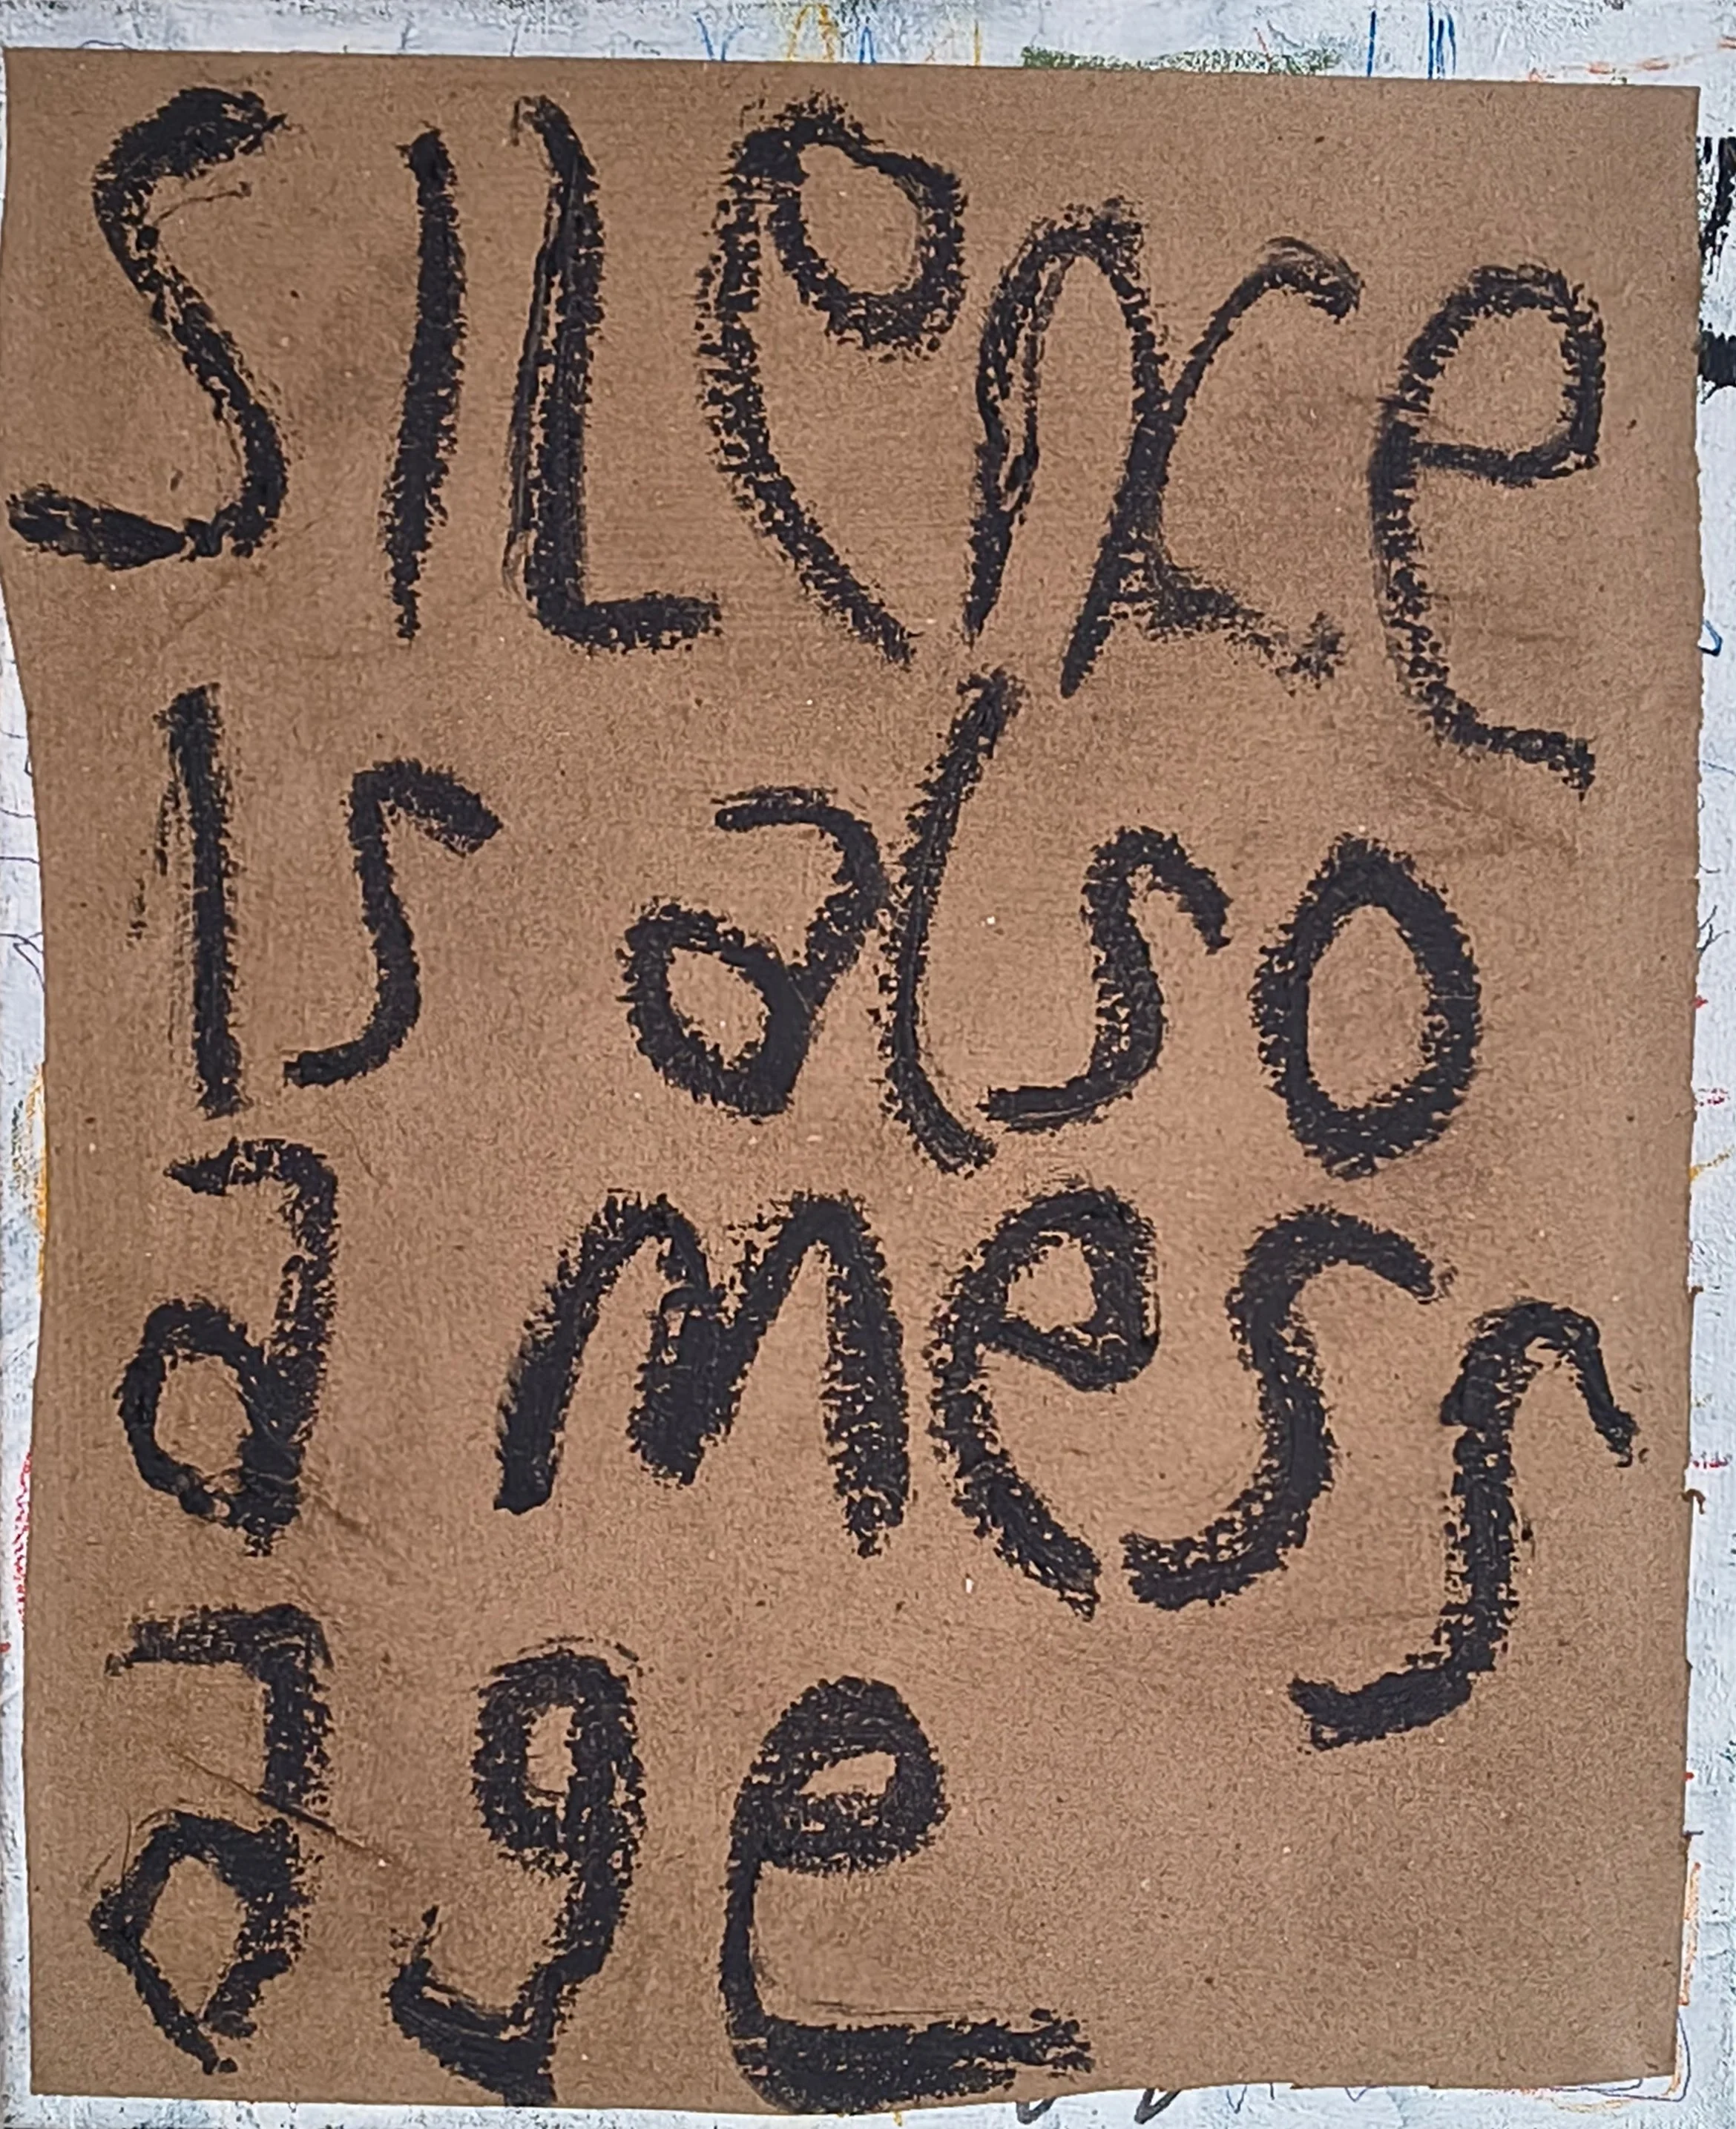 Silence
Is also
a mess
age